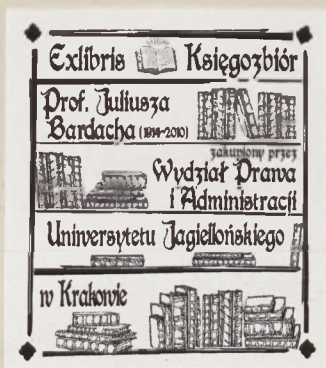 Exlibris Księgozbiór
Prof. Juliusza
Bardacha (1914-2010)
zakupiony przez
Wydział Prawa
i Administracji
Uniwersytetu Jagiellońskiego
w Krakowie